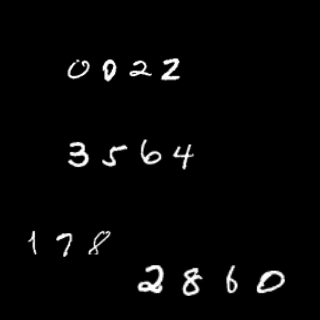 0022
3564
178
2860